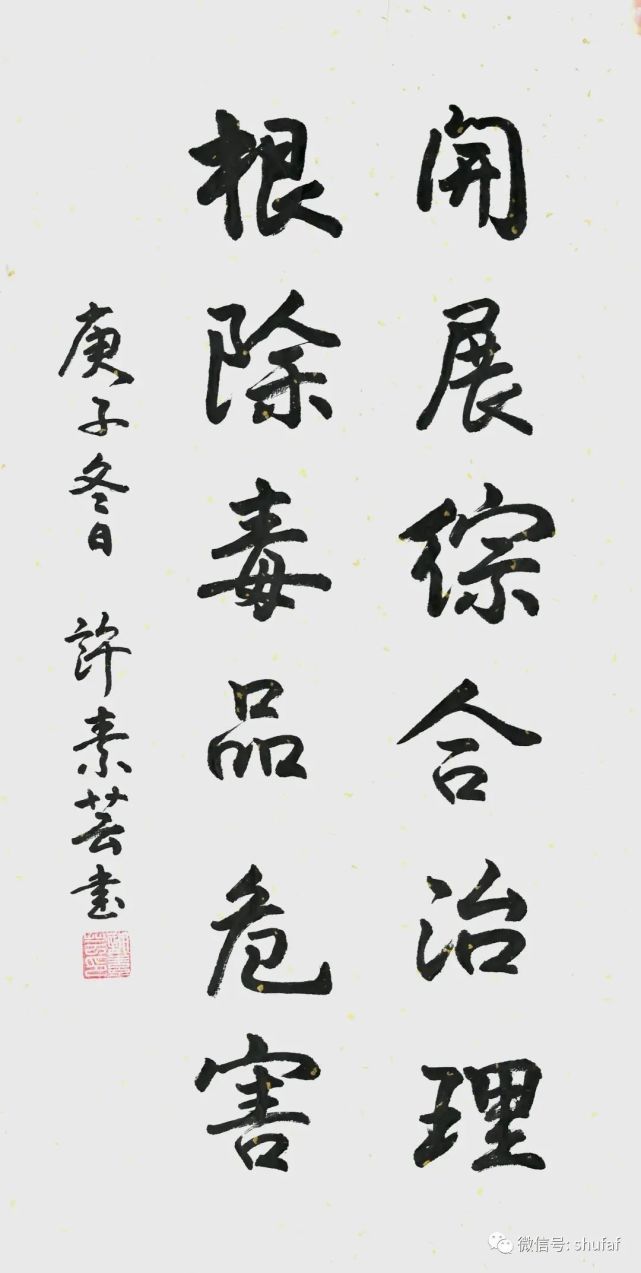 開展綜合治理
根除毒品危害
庚子冬日 許素芸書
微信号: shufaf